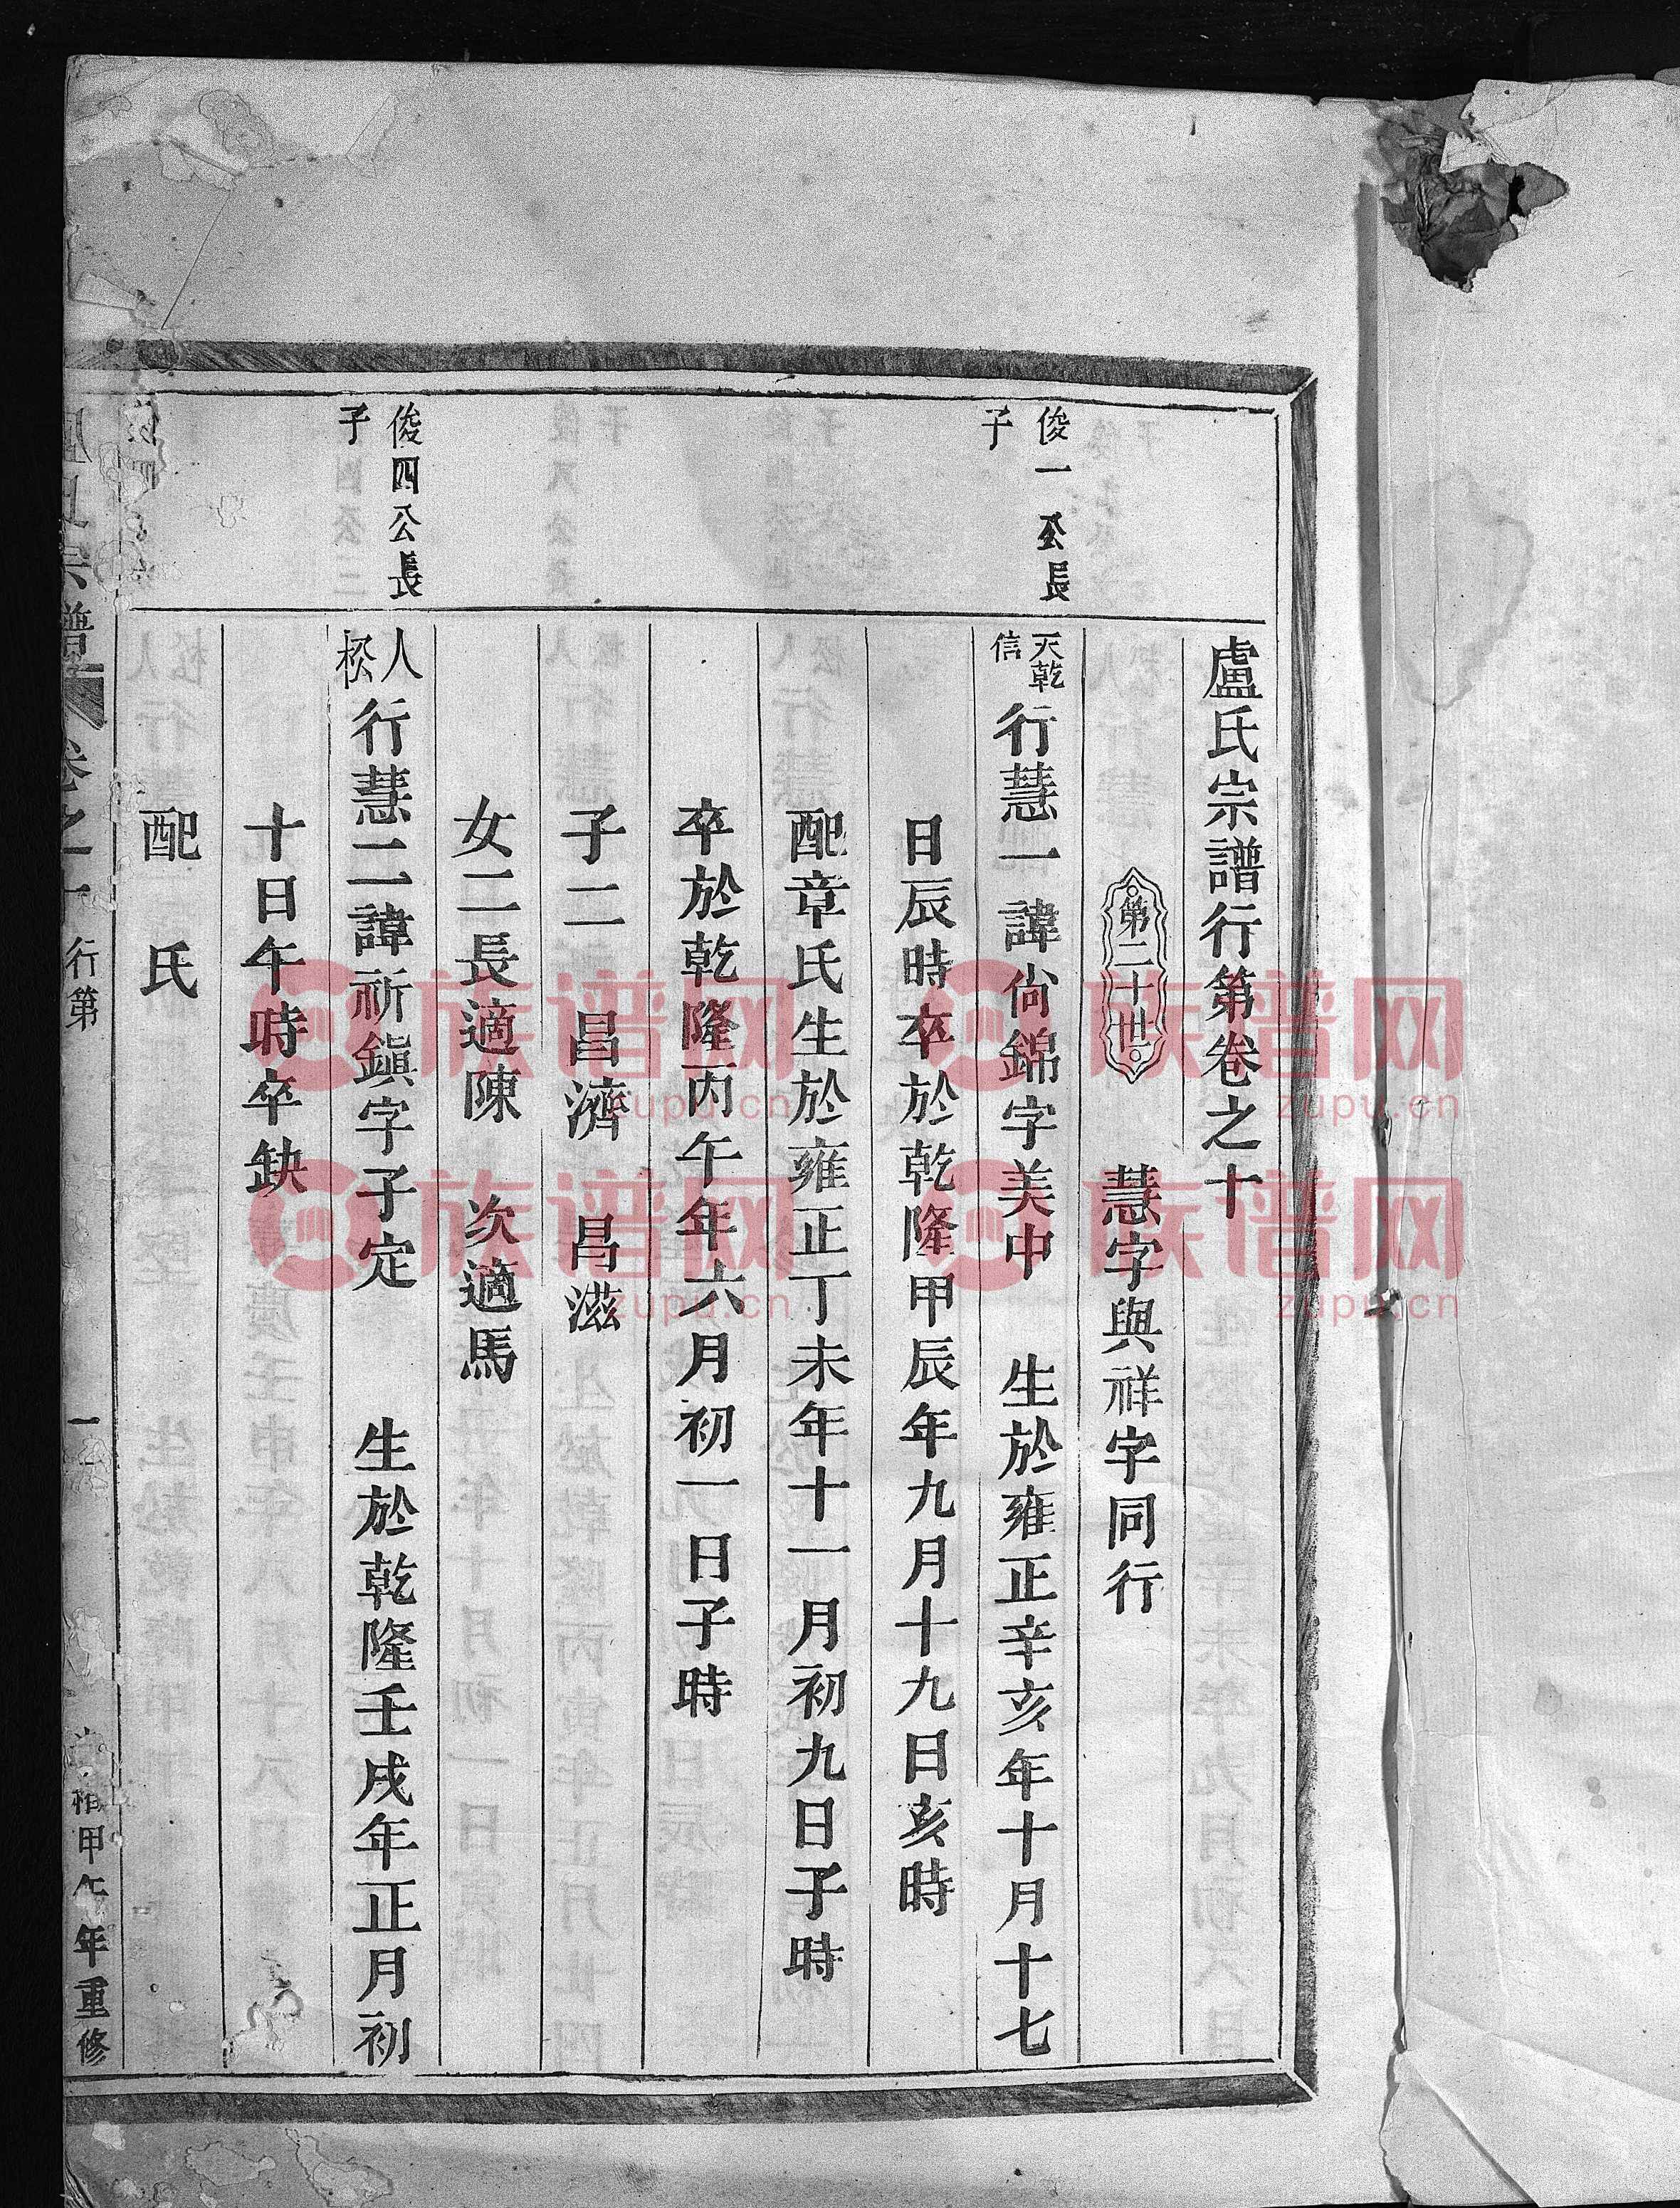 盧氏宗譜行第卷之十
第二十世
慧字與祥字同行
俊一公長
子
天乾
信
行慧一諱尙錦字美中 生於雍正辛亥年十月十七
日辰時卒於乾隆甲辰年九月十九日亥時
配章氏生於雍正丁未年十一月初九日子時
卒於乾隆丙午年六月初一日子時
子二 昌濟 昌滋
女二長適陳 次適馬
俊四公長
子
人
松
行慧二諱祈鎭字子定 生於乾隆壬戌年正月初
十日午時卒缺
配 氏
宗譜 卷之十 行第 一 甲午年重修
族谱网
zupu.cn
族谱网
zupu.cn
族谱网
zupu.cn
族谱网
zupu.cn